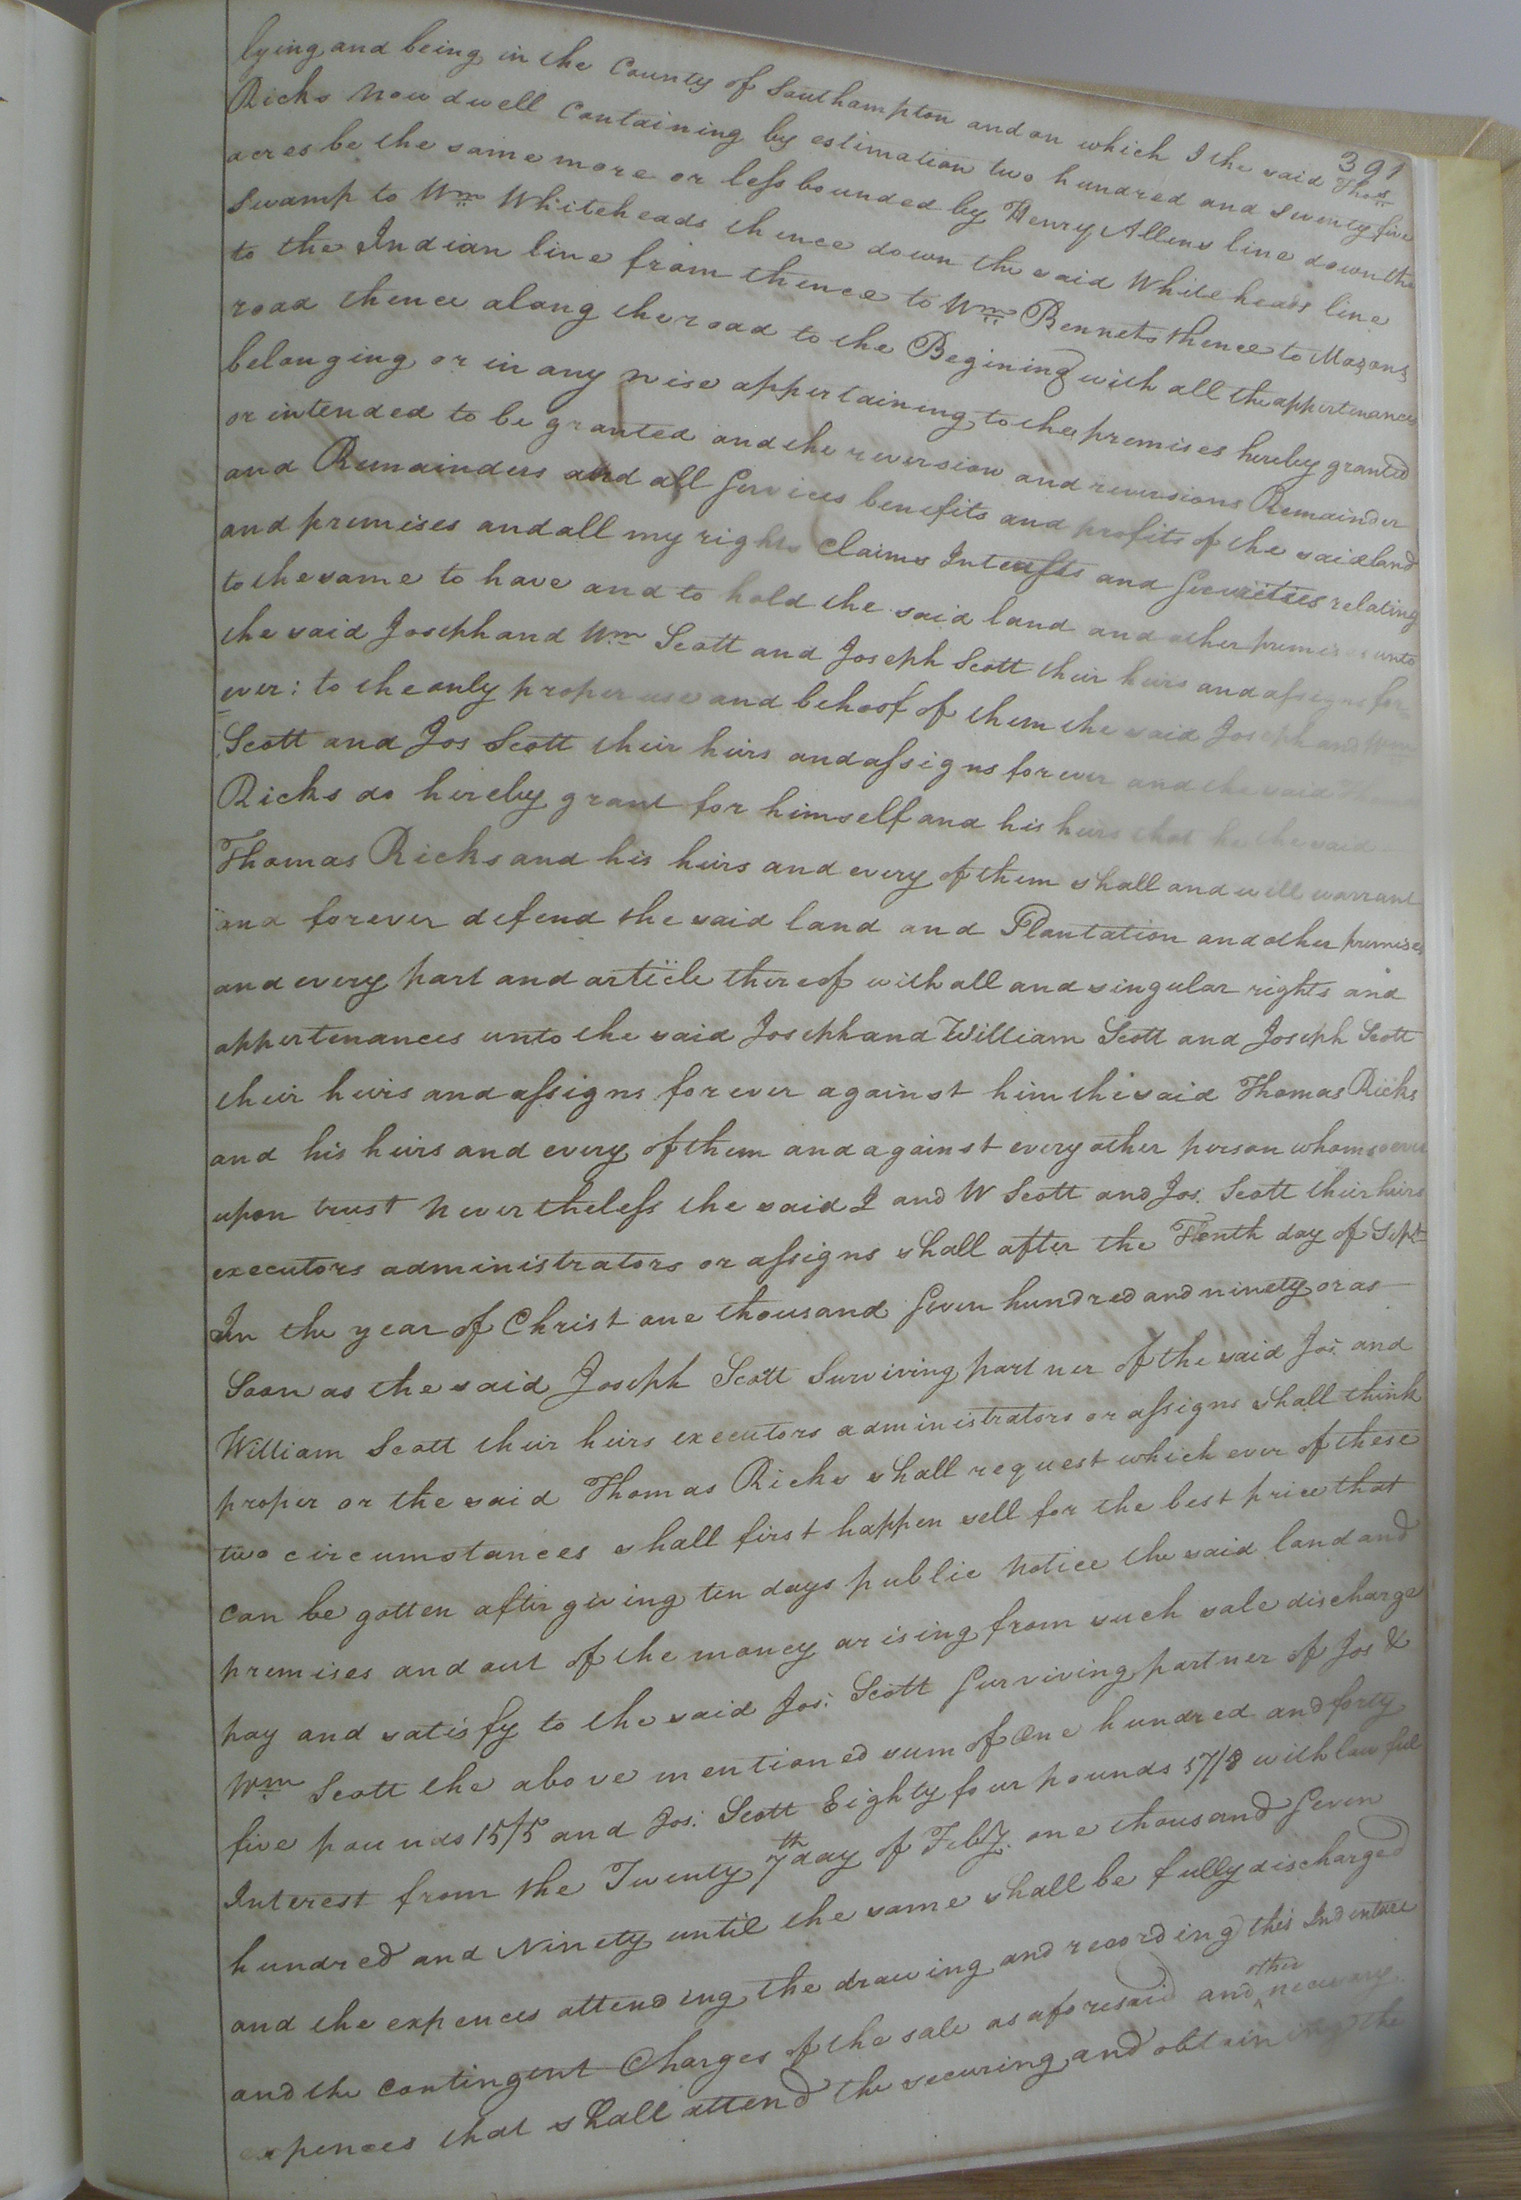 391
lying and being in the County of Southampton and on which I the said Thos
Ricks now dwell Containing by estimation two hundred and twenty five
acres be the same more or less bounded by Henry Allens line down the
Swamp to Wm Whiteheads thence down the said Whiteheads line
to the Indian line from thence to Wm Bennets thence to
road thence along the road to the Begining with all the appertenances
belonging or in any wise appertaining to the premises hereby granted
or intended to be granted and the reversion and reversions Remainder
and Remainders and all Services benefits and profits of the said land
and premises and all my rights Claims Interests and Securities relating
to the same to have and to hold the said land and other premises unto
the said Joseph and Wm Scott and Joseph Scott their heirs and assigns for=
ever: to the only proper use and behoof of them the said Joseph and Wm
Scott and Jos Scott their heirs and assigns forever and the said
Ricks do hereby grant for himself and his heirs that he the said
Thomas Ricks and his heirs and every of them shall and will warrant
and forever defend the said land and Plantation and other premises
and every part and article thereof with all and singular rights and
appertenances unto the said Joseph and William Scott and Joseph Scott
their heirs and assigns forever against him the said Thomas Ricks
and his heirs and every of them and against every other person whomsoever
upon trust Nevertheless the said J and W Scott and Jos. Scott their heirs
executors administrators or assigns shall after the Tenth day of Sept
In the year of Christ one thousand Seven hundred and ninety or as
Soon as the said Joseph Scott Surviving partner of the said Jos. and
William Scott their heirs executors administrators or assigns shall think
proper or the said Thomas Ricks shall request which ever of these
two circumstances shall first happen sell for the best price that
can be gotten after giving ten days public Notice the said land and
premises and out of the money arising from such sale discharge
pay and satisfy to the said Jos. Scott Surviving partner of Jos &
Wm Scott the above mentioned sum of One hundred and forty
five pounds 15/5 and Jos. Scott Eighty four pounds 17/8 with lawful
Interest from the Twenty 7th day of Feby. one thousand Seven
hundred and Ninety until the same shall be fully discharged
and the expences attending the drawing and recording this Indenture
and the Contingent Charges of the sale as aforesaid and other necessary
expences that shall attend the securing and obtaining the